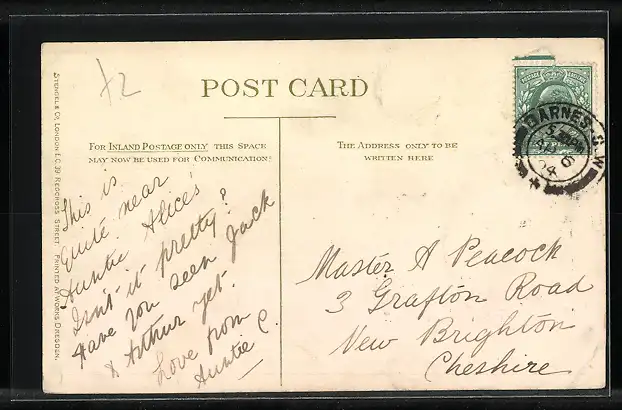 /2
POST CARD
FOR INLAND POSTAGE ONLY THIS SPACE
MAY NOW BE USED FOR COMMUNICATION.
THE ADDRESS ONLY TO BE
WRITTEN HERE
STENGEL & Co, LONDON E.C. 39 REDCROSS STREET PRINTED AT WORKS DRESDEN.
This is
quite near
Auntie Alice's
Isn't it pretty?
Have you seen Jack
& Arthur yet.
Love from
Auntie C.
Master A Peacock
3 Grafton Road
New Brighton
Cheshire
BARNES. S.W
04